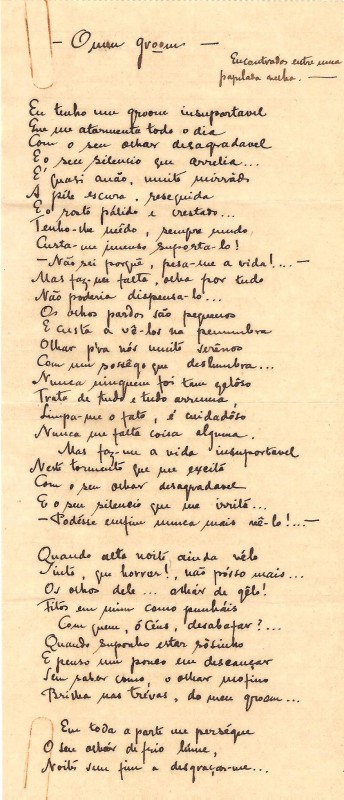 — O meu groom —
Encontrados entre uma
papelada velha. —
Eu tenho um groom insuportavel
Que me atormenta todo o dia
Com o seu olhar desagradavel
E o seu silencio que arrelia...
É quasi anão, muito mirrádo
A péle escura, resequida
E o rosto pálido e crestado...
Tenho-lhe mêdo, sempre mudo
Custa-me imenso suporta-lo!
— Não sei porquê, pesa-me a vida!... —
Mas faz-me falta, olha por tudo
Não poderia dispensa-lo...
Os olhos pardos são pequenos
E custa a vê-los na penumbra
Olhar p'ra nós muito serênos
Com um sosêgo que deslumbra...
Nunca ninguem foi tam zelôso
Trata de tudo e tudo arruma,
Limpa-me o fato, é cuidadôso
Nunca me falta coisa alguma.
Mas faz-me a vida insuportavel
Neste tormento que me excita
Com o seu olhar desagradavel
E o seu silencio que me irrita...
— Podésse emfim nunca mais vê-lo!... —
Quando alta noite ainda vélo
Sinto, que horror!, não pósso mais...
Os olhos dele... olhár de gêlo!
Fitos em mim como punháis
Com quem, ó Céus, desabafar?...
Quando suponho estar sósinho
E penso um pouco em descançar
Sem saber como, o olhar mofino
Brilha nas trévas, do meu groom...
Em toda a parte me perségue
O seu olhár de frio lume,
Noites sem fim a desgraçar-me...